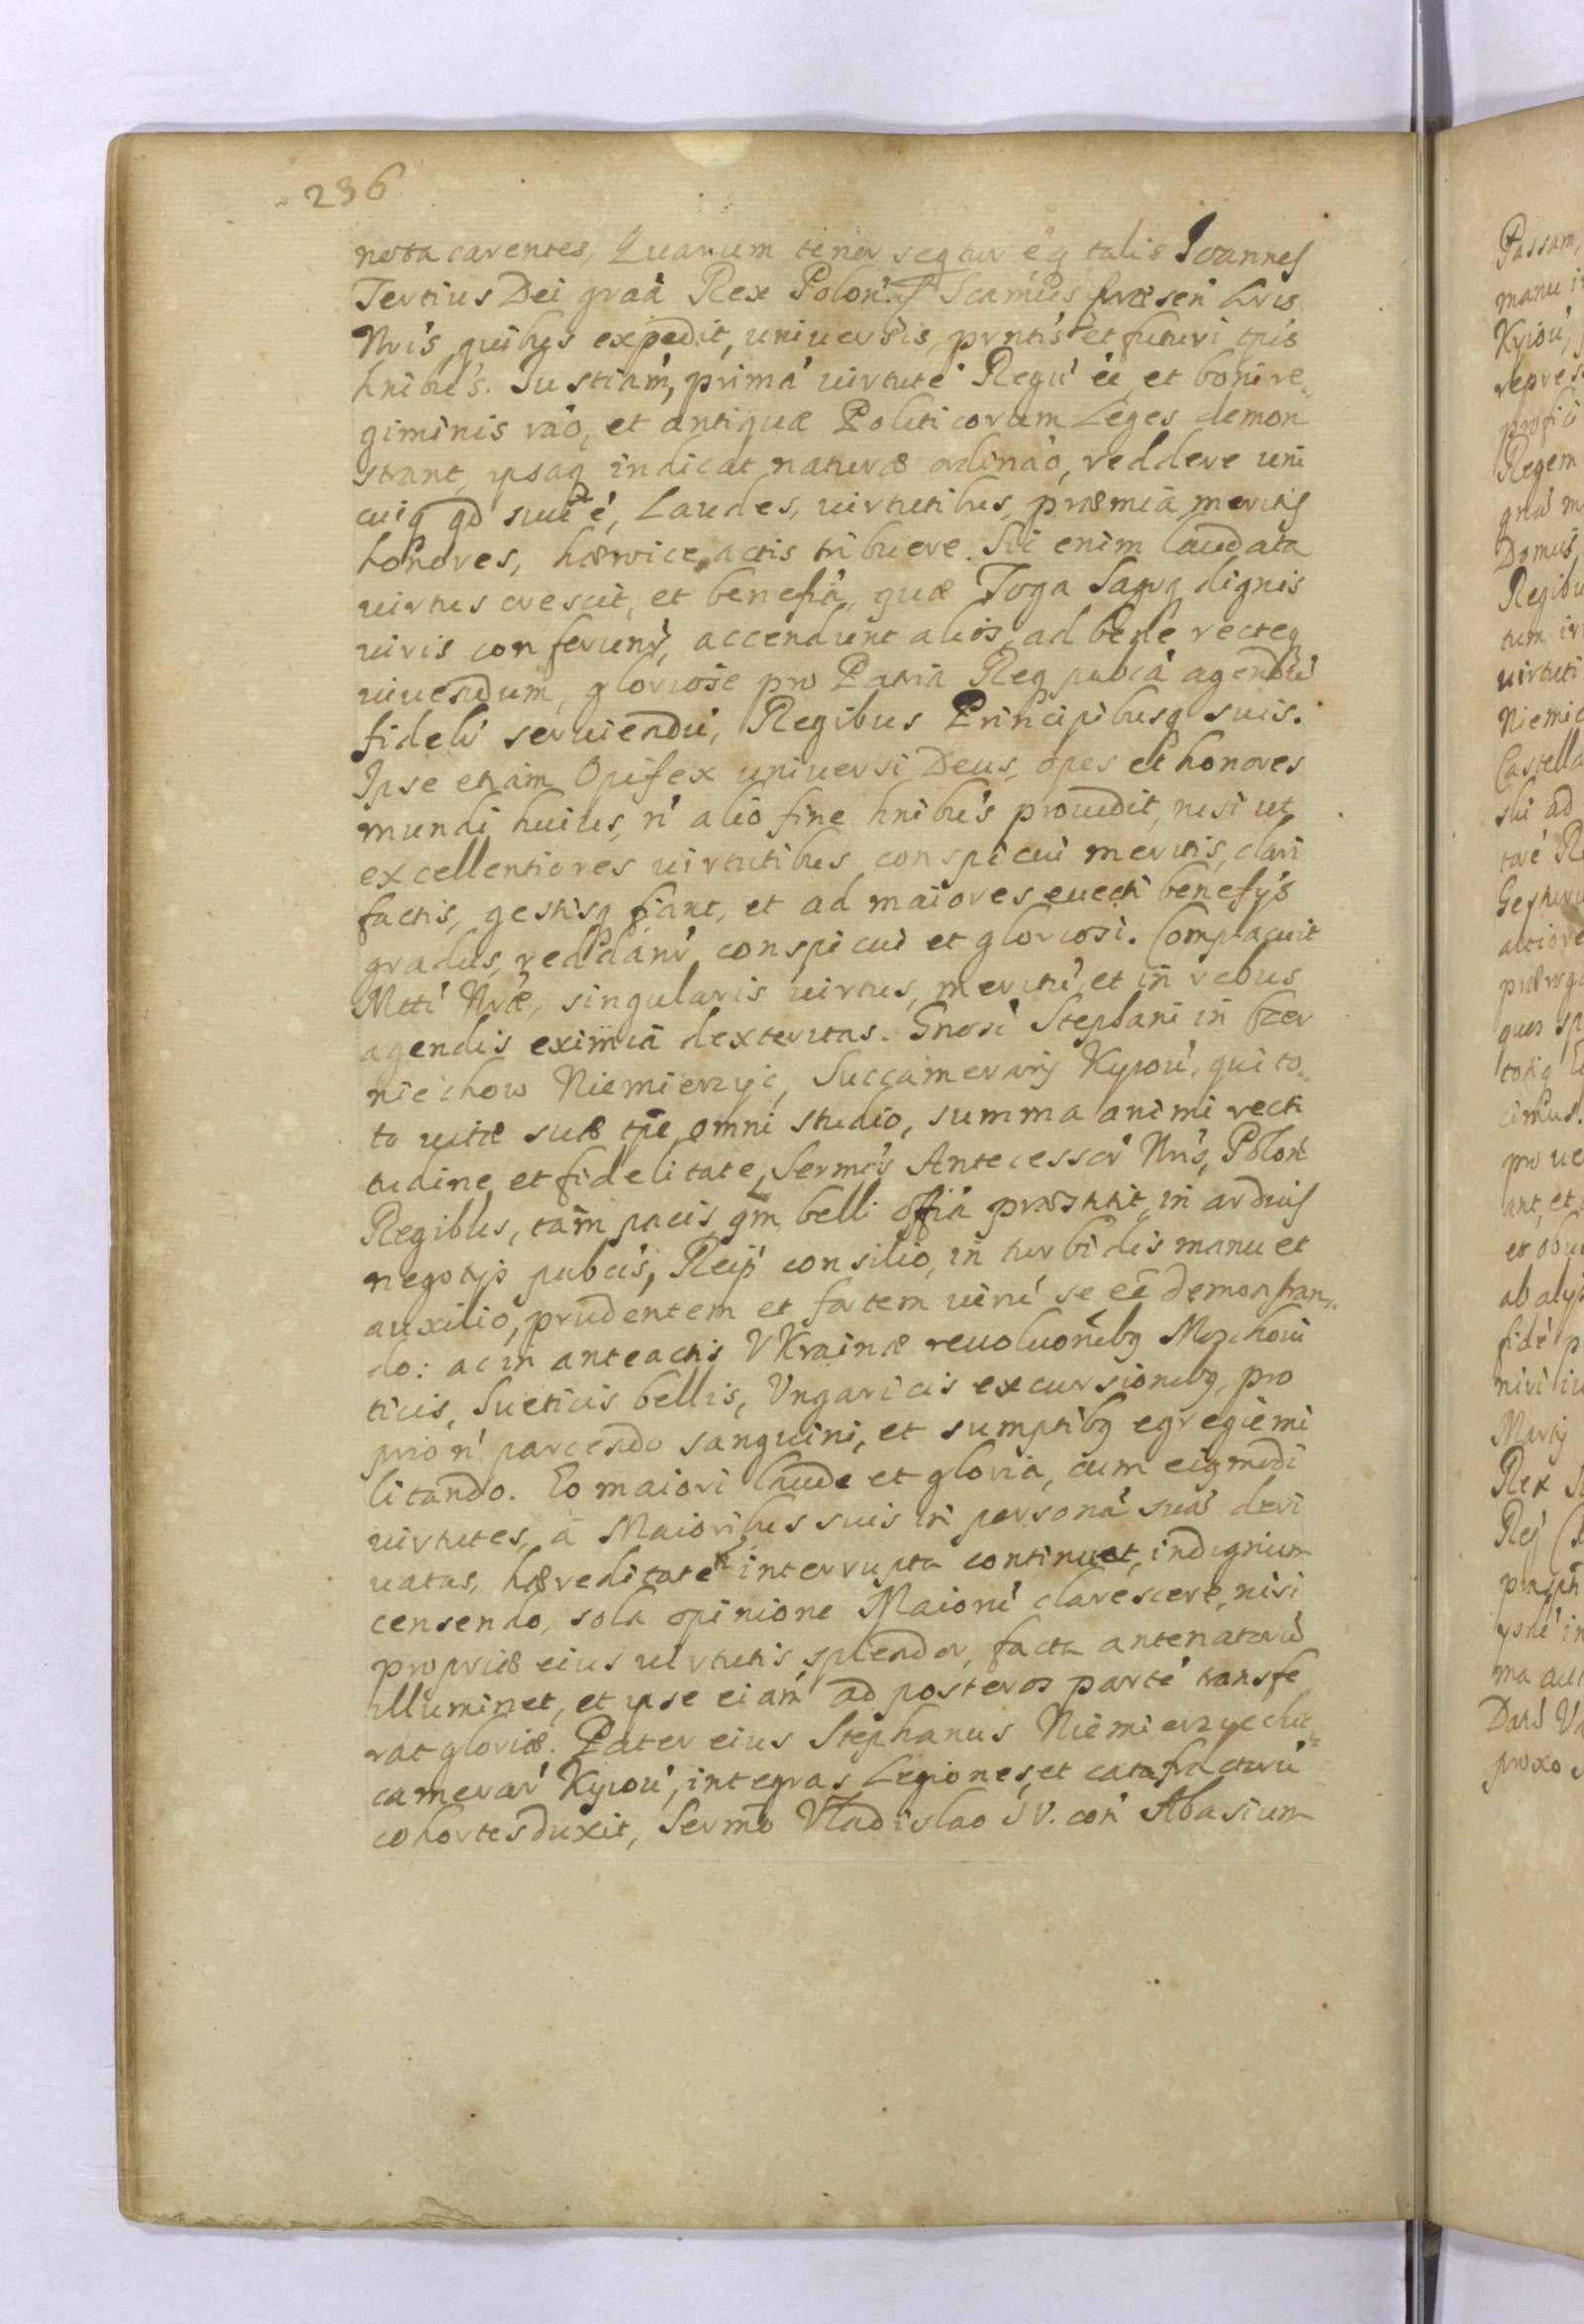 296
nota carentes, Quarum tenor seqtur éq talis Joannes
Tertius Dei graã Rex Polon. Scamus præsen Lris
Nris quibus expedit, universis, prntis et futuri tpis
hnibus. Justiam, prima uirtute Regu eé et boni re„
giminis rao, et antiquæ Politicorum Leges demon
strant, ipsaq indicat naturæ ordinao, reddere uni
cuiq qd suu é, Laudes, uirtutibus, præmia meritis
honores, hæroice actis tribuere. Sic enim laudata
uirtus crescit, et benefia, quæ Toga Sagoq dignis
uiris conferunr, accendunt alios, ad bene recteq
uiuendum, gloriose pro Patria Req pubca agendu
fideli seruiendu, Regibus Principibusq suis.
Ipse etiam Opifex universi Deus, opes et honores
mundi huius, n alio fine hnibus prouidit, nisi ut
excellentiores uirtutibus conspicui meritis, clari
factis, gestisq fiant, et ad maiores euecti benefijs
gradus, reddanr conspicui et gloriosi. Complacuit
Mtti Nræ, singularis uirtus, meritu, et in rebus
agendis eximia dexteritas. Gnosi Stephani in Czer
niechow Niemierzyc, Succamerarij Kyiou, qui to„
to uitæ suæ tpe omni studio, summa animi recti
tudine et fidelitate, Sermis Antecessor Nris, Polon
Regibus, tam pacis qm belli offia præstitit, in arduis
negotijs pubcis, Reip consilio, in turbidis manu et
auxilio, prudentem et fortem uiru se eé demonstran„
do: ac in anteactis Vkrainæ reuoluonibq Moschoui
ticis, Sueticis bellis, Vngaricis excursionibq, pro
prio n parcendo sanguini, et sumptibq egregie mi
litando. Eo maiori laude et gloria, cum eiqmodi
uirtutes, a Maioribus suis in persona sua deri
uatas, hæreditate interrupta continuet, indignum
censendo, sola opinione Maioru clarescere, nisi
propriæ eius uirtutis splendor, facta antenatoru
illuminet, et ipse eiam ad posteros parte transfe
rat gloriæ. Pater eius Stephanus Niemierzyc Suc„
camerar Kyiou, integras Legiones, et catafractaru
cohortes duxit, Sermo Vladislao IV. con Abasium